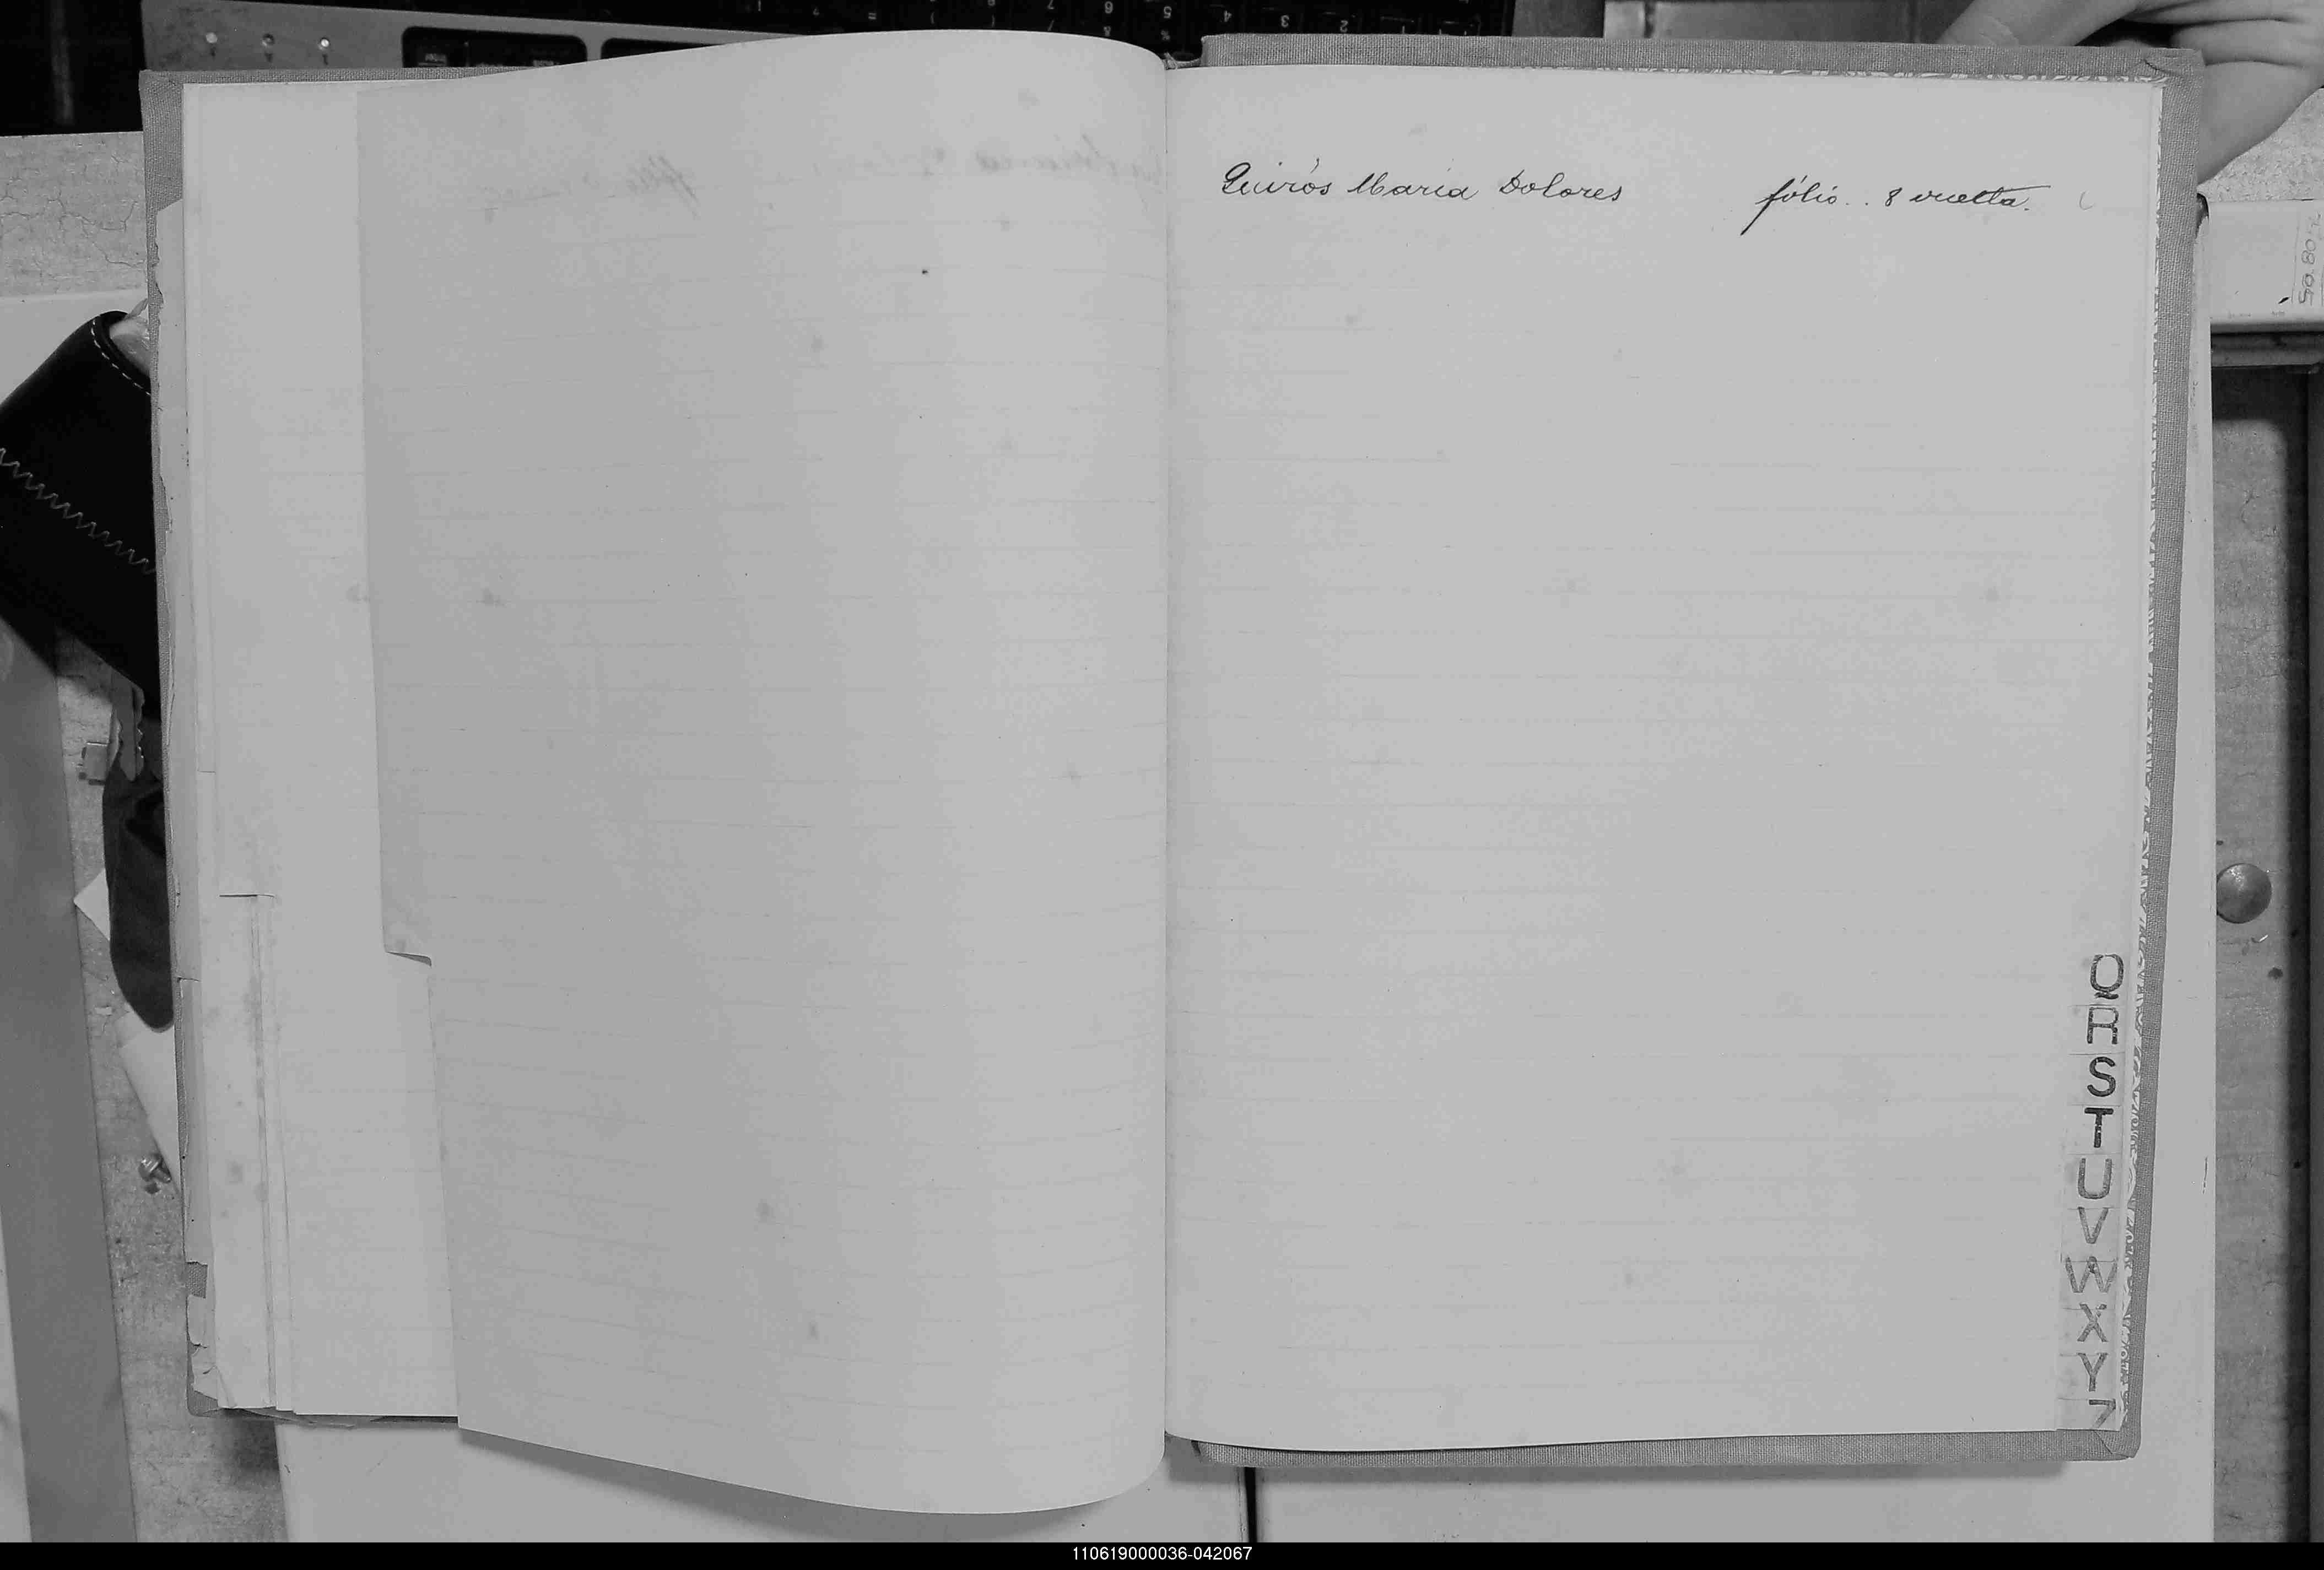 Quirós María Dolores fólio . . 8 vuelta.
Q
R
S
T
U
V
W
X
Y
Z
110619000036-042067